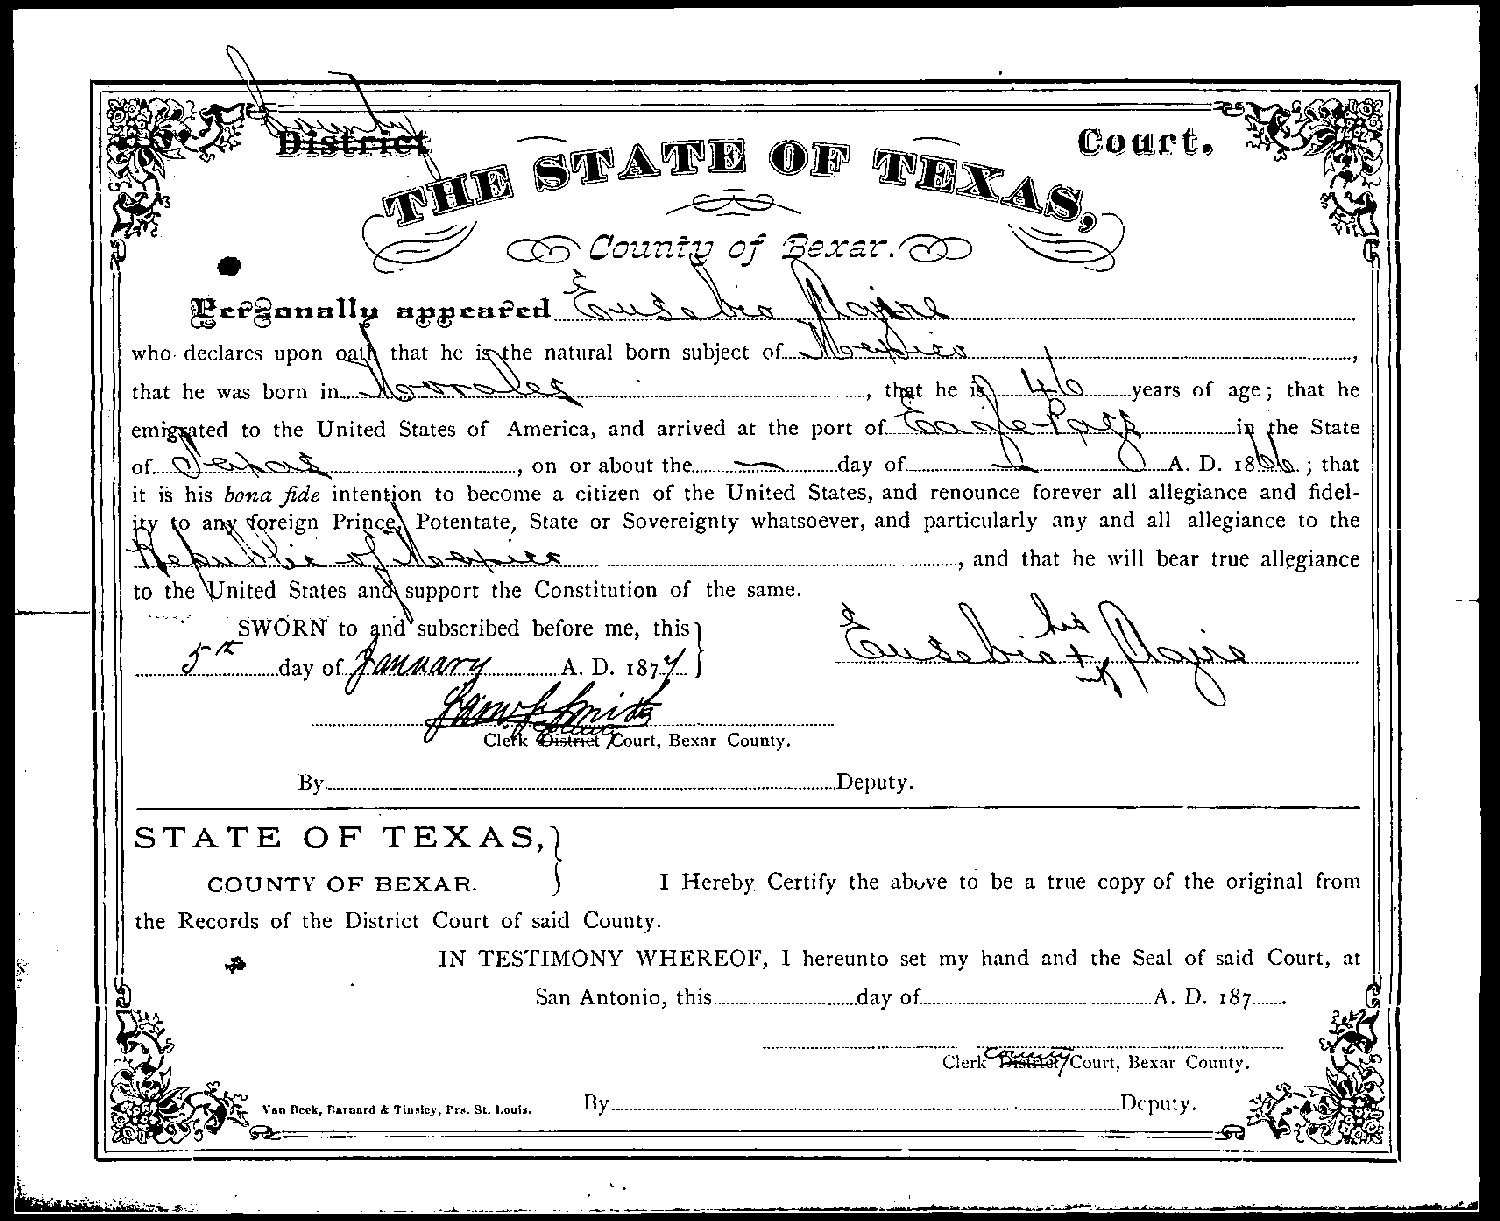 County
District Court.
THE STATE OF TEXAS,
County of Bexar.
Personally appeared Eusebio
who declares upon oath that he is the natural born subject of Mexico,
that he was born in Morales, that he is 46 years of age; that he
emigrated to the United States of America, and arrived at the port of Eagle Pass in the State
of Texas, on or about the — day of — A. D. 1866; that
it is his bona fide intention to become a citizen of the United States, and renounce forever all allegiance and fidel-
ity to any foreign Prince, Potentate, State or Sovereignty whatsoever, and particularly any and all allegiance to the
Republic of Mexico, and that he will bear true allegiance
to the United States and support the Constitution of the same.
SWORN to and subscribed before me, this
5th day of January A. D. 1877
his
Eusebio x
Smith
County
Clerk District Court, Bexar County.
By Deputy.
STATE OF TEXAS,
COUNTY OF BEXAR.
I Hereby Certify the above to be a true copy of the original from
the Records of the District Court of said County.
IN TESTIMONY WHEREOF, I hereunto set my hand and the Seal of said Court, at
San Antonio, this day of A. D. 187 .
County
Clerk District Court, Bexar County.
Van Beek, Barnard & Tinsley, Prs. St. Louis.
By Deputy.